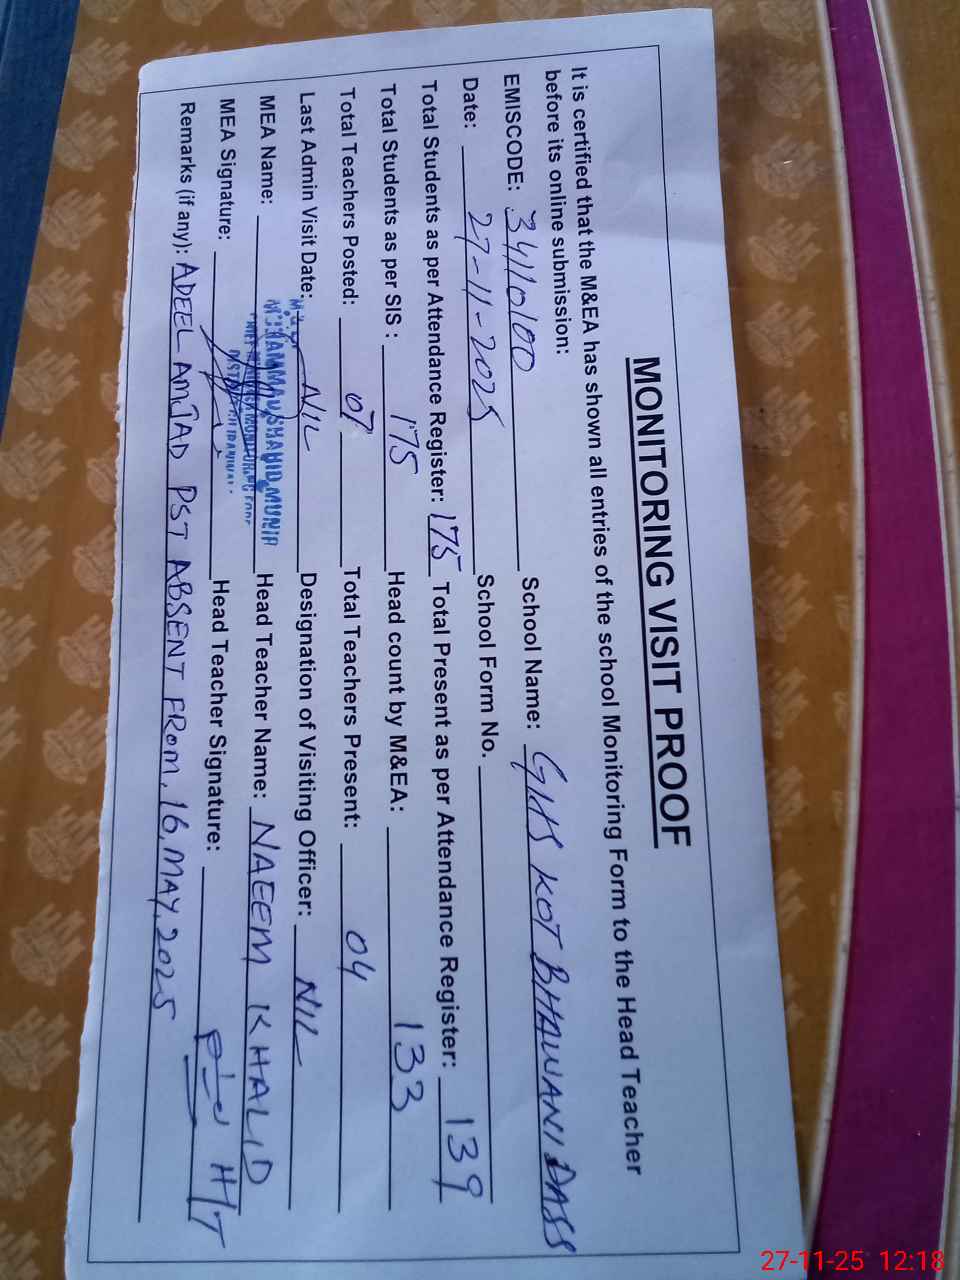 MONITORING VISIT PROOF
It is certified that the M&EA has shown all entries of the school Monitoring Form to the Head Teacher
before its online submission:
EMISCODE: 34110100 School Name: GHS KOT BHAWANI DASS
Date: 27-11-2025 School Form No.
Total Students as per Attendance Register: 175 Total Present as per Attendance Register: 139
Total Students as per SIS : 175 Head count by M&EA: 133
Total Teachers Posted: 07 Total Teachers Present: 04
Last Admin Visit Date: NIL Designation of Visiting Officer: NIL
MEA Name: MUHAMMAD SHAHID MUNIR Head Teacher Name: NAEEM KHALID
MEA Signature: Head Teacher Signature: H/T
Remarks (if any): ADEEL AMJAD PST ABSENT FROM, 16, MAY, 2025
27-11-25 12:18